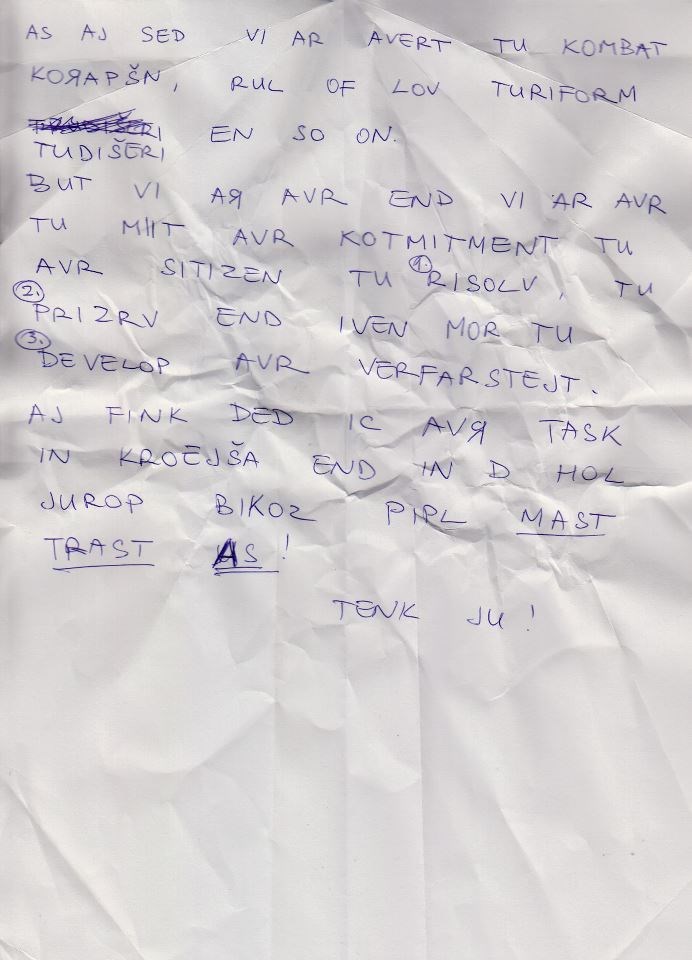 AS AJ SED VI AR AVERT TU KOMBAT
KOЯAPŠN, RUL OF LOV TURIFORM
EN SO ON.
TUDIŠERI
BUT VI AЯ AVR END VI AR AVR
TU MIIT AVR KOTMITMENT TU
AVR SITIZEN TU 1. RISOLV, TU
2. PRIZRV END IVEN MOR TU
3. DEVELOP AVR VERFARSTEJT.
AJ FINK DED IC AVЯ TASK
IN KROEJŠA END IN D HOL
JUROP BIKOZ PIPL MAST
TRAST AS!
TENK JU!